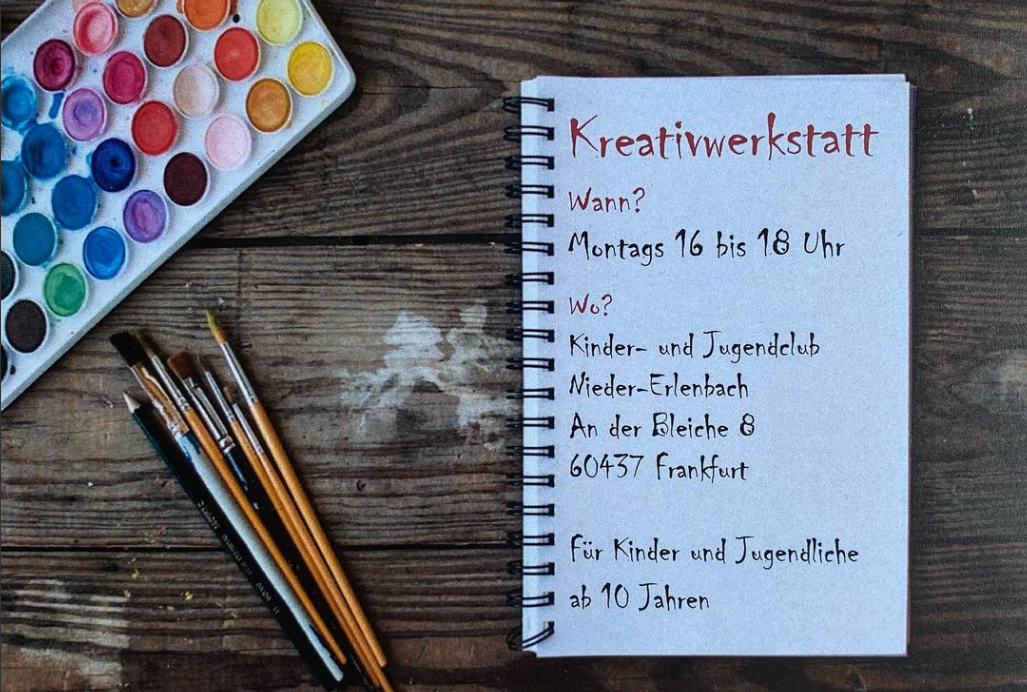 Kreativwerkstatt
Wann?
Montags 16 bis 18 Uhr
Wo?
Kinder- und Jugendclub
Nieder-Erlenbach
An der Bleiche 8
60437 Frankfurt
Für Kinder und Jugendliche
ab 10 Jahren